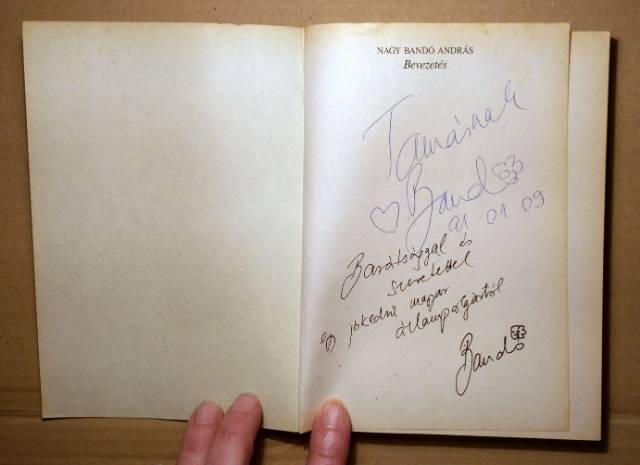 NAGY BANDÓ ANDRÁS
Bevezetés
Tamásnak
Bandó
91 01 09
Barátsággal és
szeretettel
egy jókedvű magyar
állampolgártól
Bandó